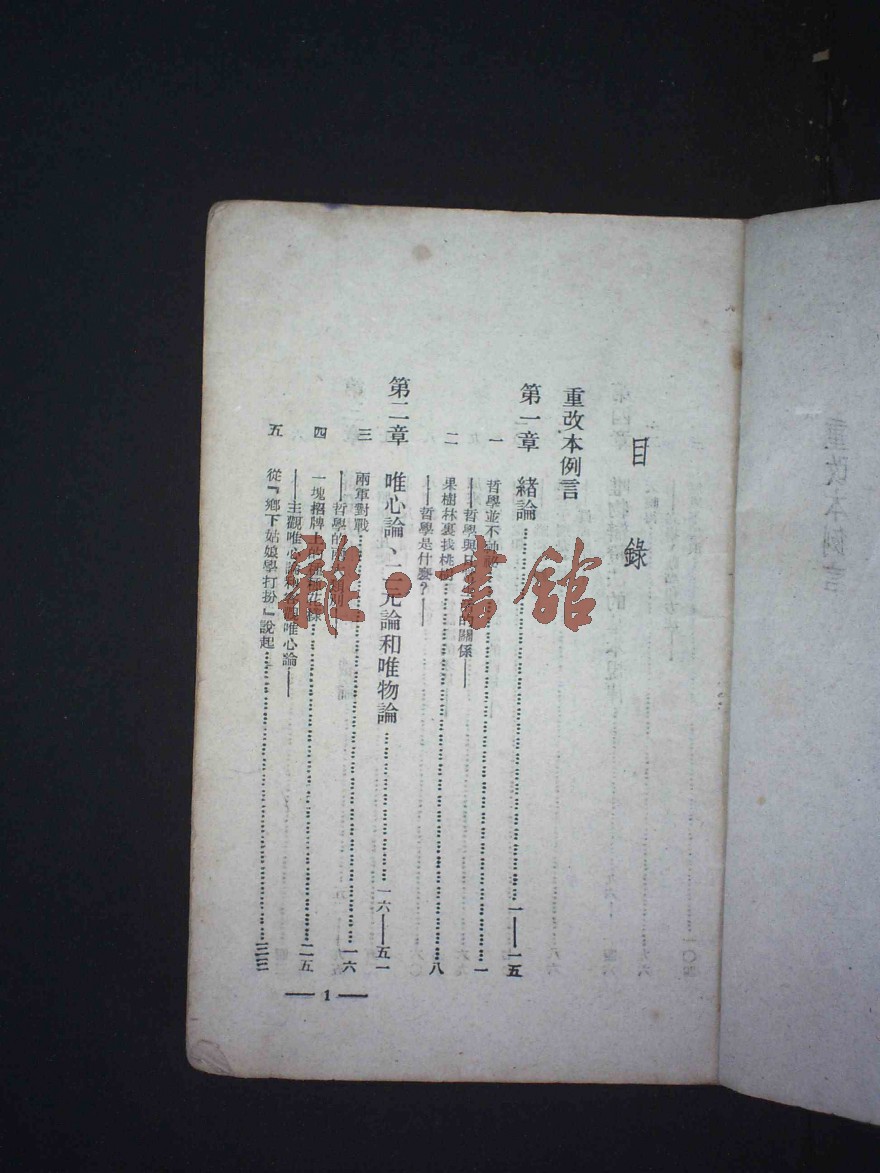 目錄
重改本例言
第一章 緒論……一——一五
一 哲學並不神……一
——哲學與日……的關係——
二 果樹林裏找桃……八
——哲學是什麼？——
第二章 唯心論、二元論和唯物論……一六——五一
三 兩軍對戰……一六
——哲學的兩大類別——
四 一塊招牌上的種種花樣……二五
——主觀唯心論和客觀唯心論——
五 從『鄉下姑娘學打扮』說起……三三
— 1 —
雜·書館
重改本例言